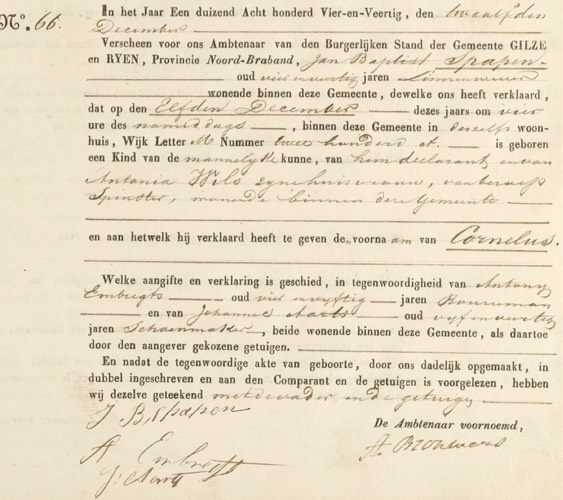 Nº. 66.
In het Jaar Een duizend Acht honderd Vier-en-Veertig, den twaalfden
December
Verscheen voor ons Ambtenaar van den Burgerlijken Stand der Gemeente GILZE
en RYEN, Provincie Noord-Braband, Jan Baptist Spapen
oud vierenveertig jaren Linnenwever
wonende binnen deze Gemeente, dewelke ons heeft verklaard,
dat op den Elfden December dezes jaars om vier
ure des namiddags, binnen deze Gemeente in deszelfs woon-
huis, Wijk Letter M Nummer twee honderd is geboren
een Kind van de mannelyke kunne, van hem declarant en van
Antonia Wils zyne huisvrouw, van beroep
Spinster, wonende binnen deze Gemeente
en aan hetwelk hij verklaard heeft te geven den voornaam van Cornelus.
Welke aangifte en verklaring is geschied, in tegenwoordigheid van Antony
Embregts oud vier en vyftig jaren Bouwman
en van Johannes Aarts oud vyfenveertig
jaren Schoenmaker, beide wonende binnen deze Gemeente, als daartoe
door den aangever gekozene getuigen.
En nadat de tegenwoordige akte van geboorte, door ons dadelijk opgemaakt, in
dubbel ingeschreven en aan den Comparant en de getuigen is voorgelezen, hebben
wij dezelve geteekend met de vader en de getuigen
J B Spapen
De Ambtenaar voornoemd,
A Embregts
A. Brouwers
J: Aarts